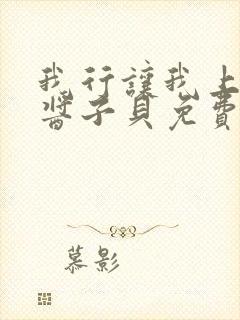 我行讓我上
醬子貝免費
慕影